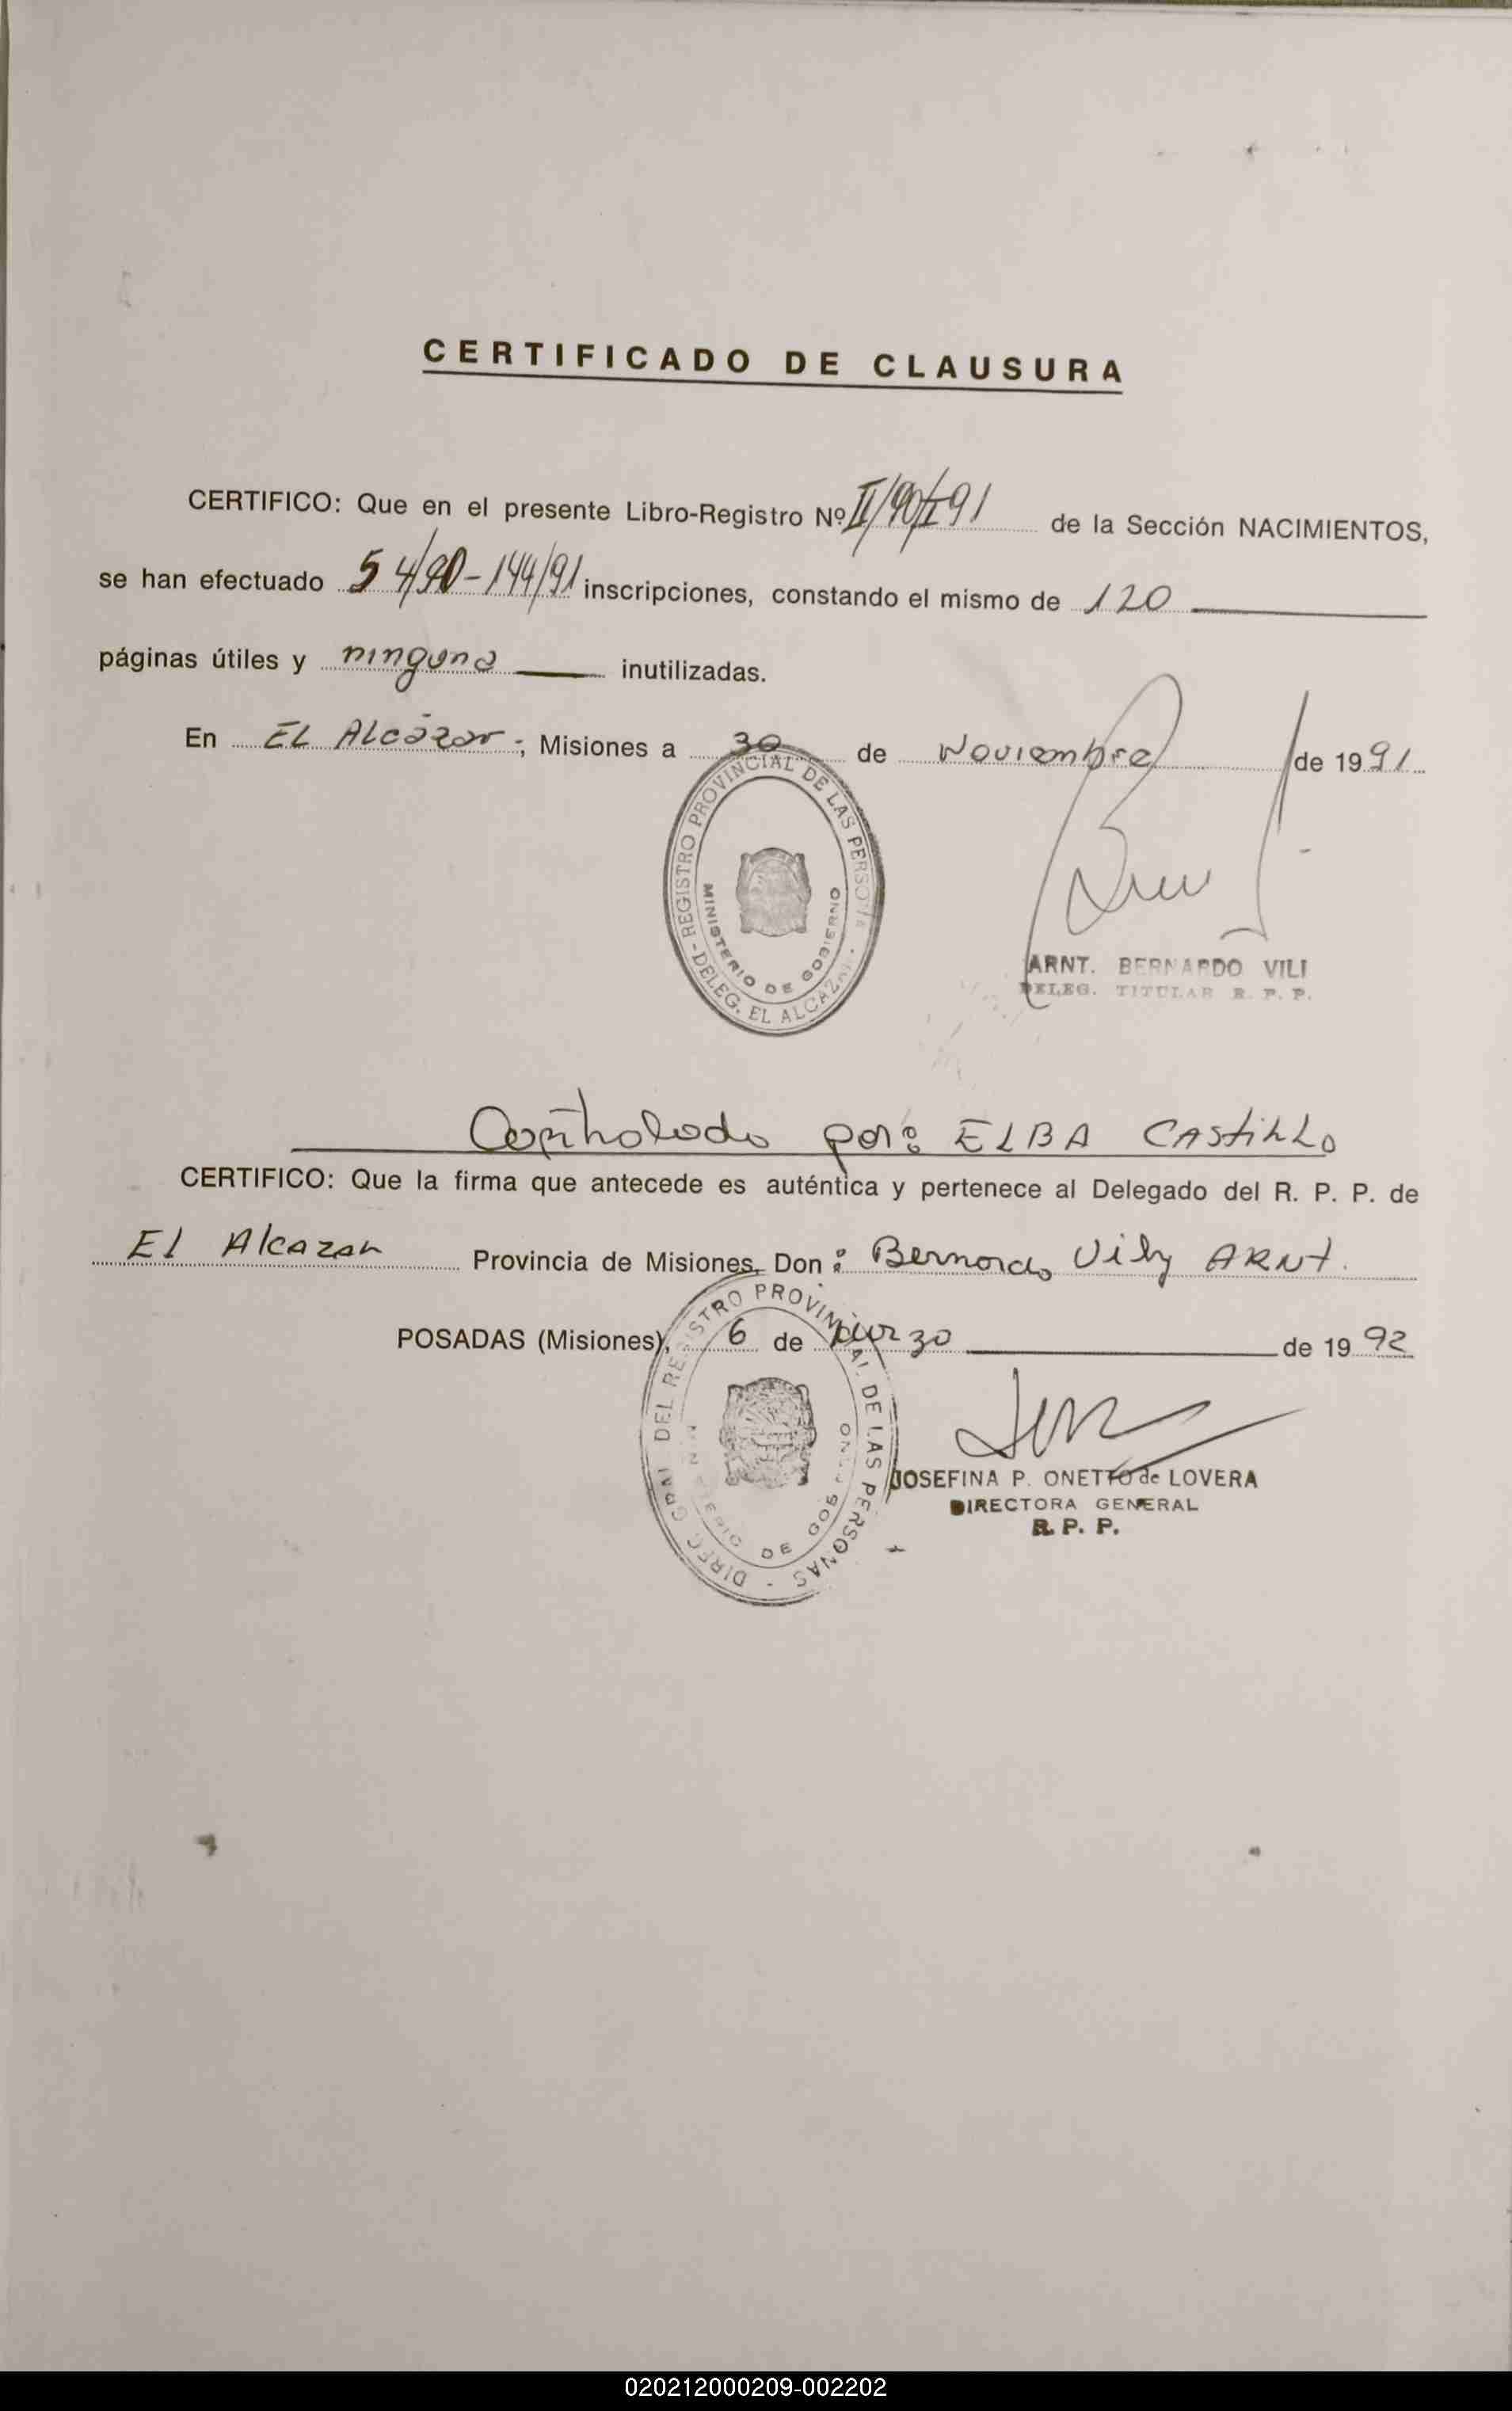 CERTIFICADO DE CLAUSURA
CERTIFICO: Que en el presente Libro-Registro Nº II/90/I91 de la Sección NACIMIENTOS,
se han efectuado 54/90-144/91 inscripciones, constando el mismo de 120
páginas útiles y ninguna inutilizadas.
En EL Alcázar; Misiones a 30 de Noviembre de 1991
REGISTRO PROVINCIAL DE LAS PERSONAS - DELEG. EL ALCAZAR -
MINISTERIO DE GOBIERNO
ARNT. BERNARDO VILI
DELEG. TITULAR R. P. P.
Controlado por: ELBA CASTILLO
CERTIFICO: Que la firma que antecede es auténtica y pertenece al Delegado del R. P. P. de
El Alcazar Provincia de Misiones, Don: Bernardo Vily ARNT.
POSADAS (Misiones), 6 de marzo de 1992
DIREC. GRAL. DEL REGISTRO PROVINCIAL DE LAS PERSONAS -
MINISTERIO DE GOBIERNO
JOSEFINA P. ONETTO de LOVERA
DIRECTORA GENERAL
R. P. P.
020212000209-002202